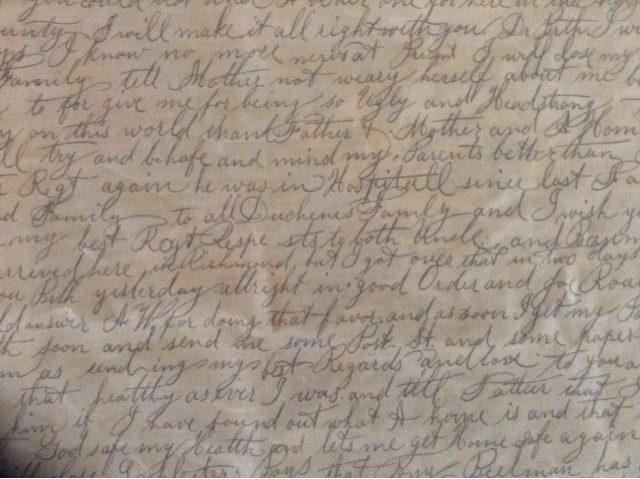 you could not send a better one for here in the
County I will make it all right with you. I
I know no more news at Present I will close my
Family tell Mother not weary herself about me
to for give me for being so Ugly and Headstrong
on this world than Father & Mother and A Home
try and behafe and mind my Parents better than
Regt again he was in Hospitell since last
Family to all Duchenes Family and I wish
my best Regt Respe sts to both Uncle and
arrived here, in Richmond, but I got over that in two days
yesterday allright in good Order and Joe
answer A. W. for doing that favor and as soon I get my
soon and send me some Post. St. and some paper
as sending my best Regards and love to you
that healthy as ever I was and tell Father that
him if I have found out what A home is and that
God safe my Health and lets me get home safe again
close Boys that Beelman has